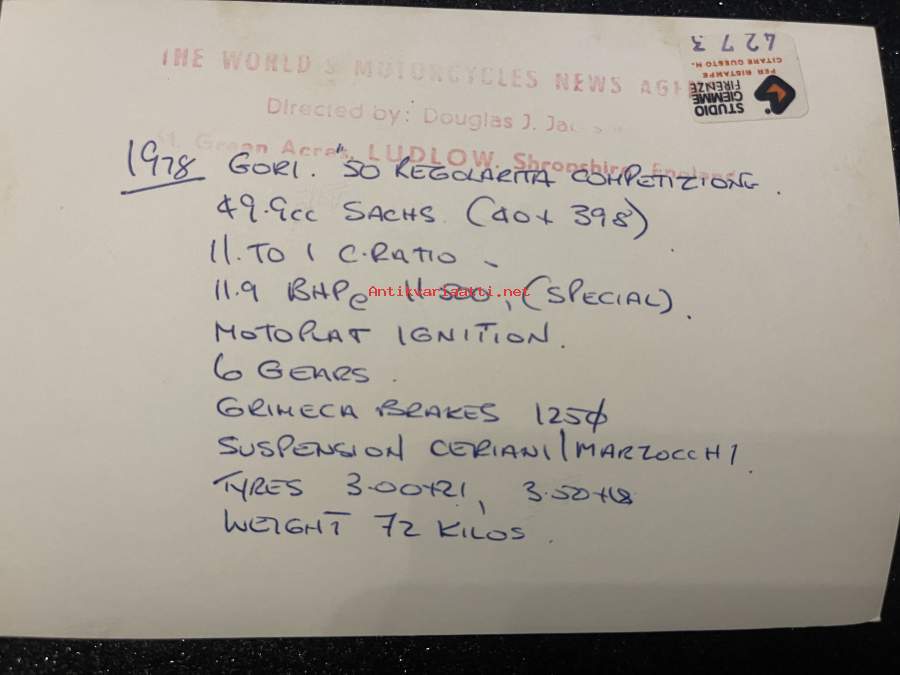 THE WORLD'S MOTORCYCLES NEWS
Directed by: Douglas J.
Green Acres, LUDLOW. Shropshire, England
4273
PER RISTAMPE
CITARE QUESTO N.
STUDIO
GIEMME
FIRENZE
1978 GORI. "50 REGOLARITA COMPETIZIONE.
49.9cc SACHS (40 x 39.8)
11. TO 1 C.RATIO
11.9 BHP@ 11500, (SPECIAL).
Antikvariaatti.net
MOTOPLAT IGNITION.
6 GEARS.
GRIMECA BRAKES 125ϕ
SUSPENSION CERIANI/MARZOCCHI.
TYRES 3.00x21, 3.50x18
WEIGHT 72 KILOS.